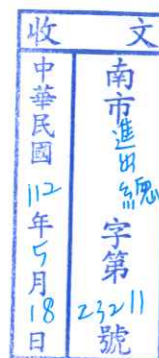 收文
南市進出總字第23211號
中華民國112年5月18日